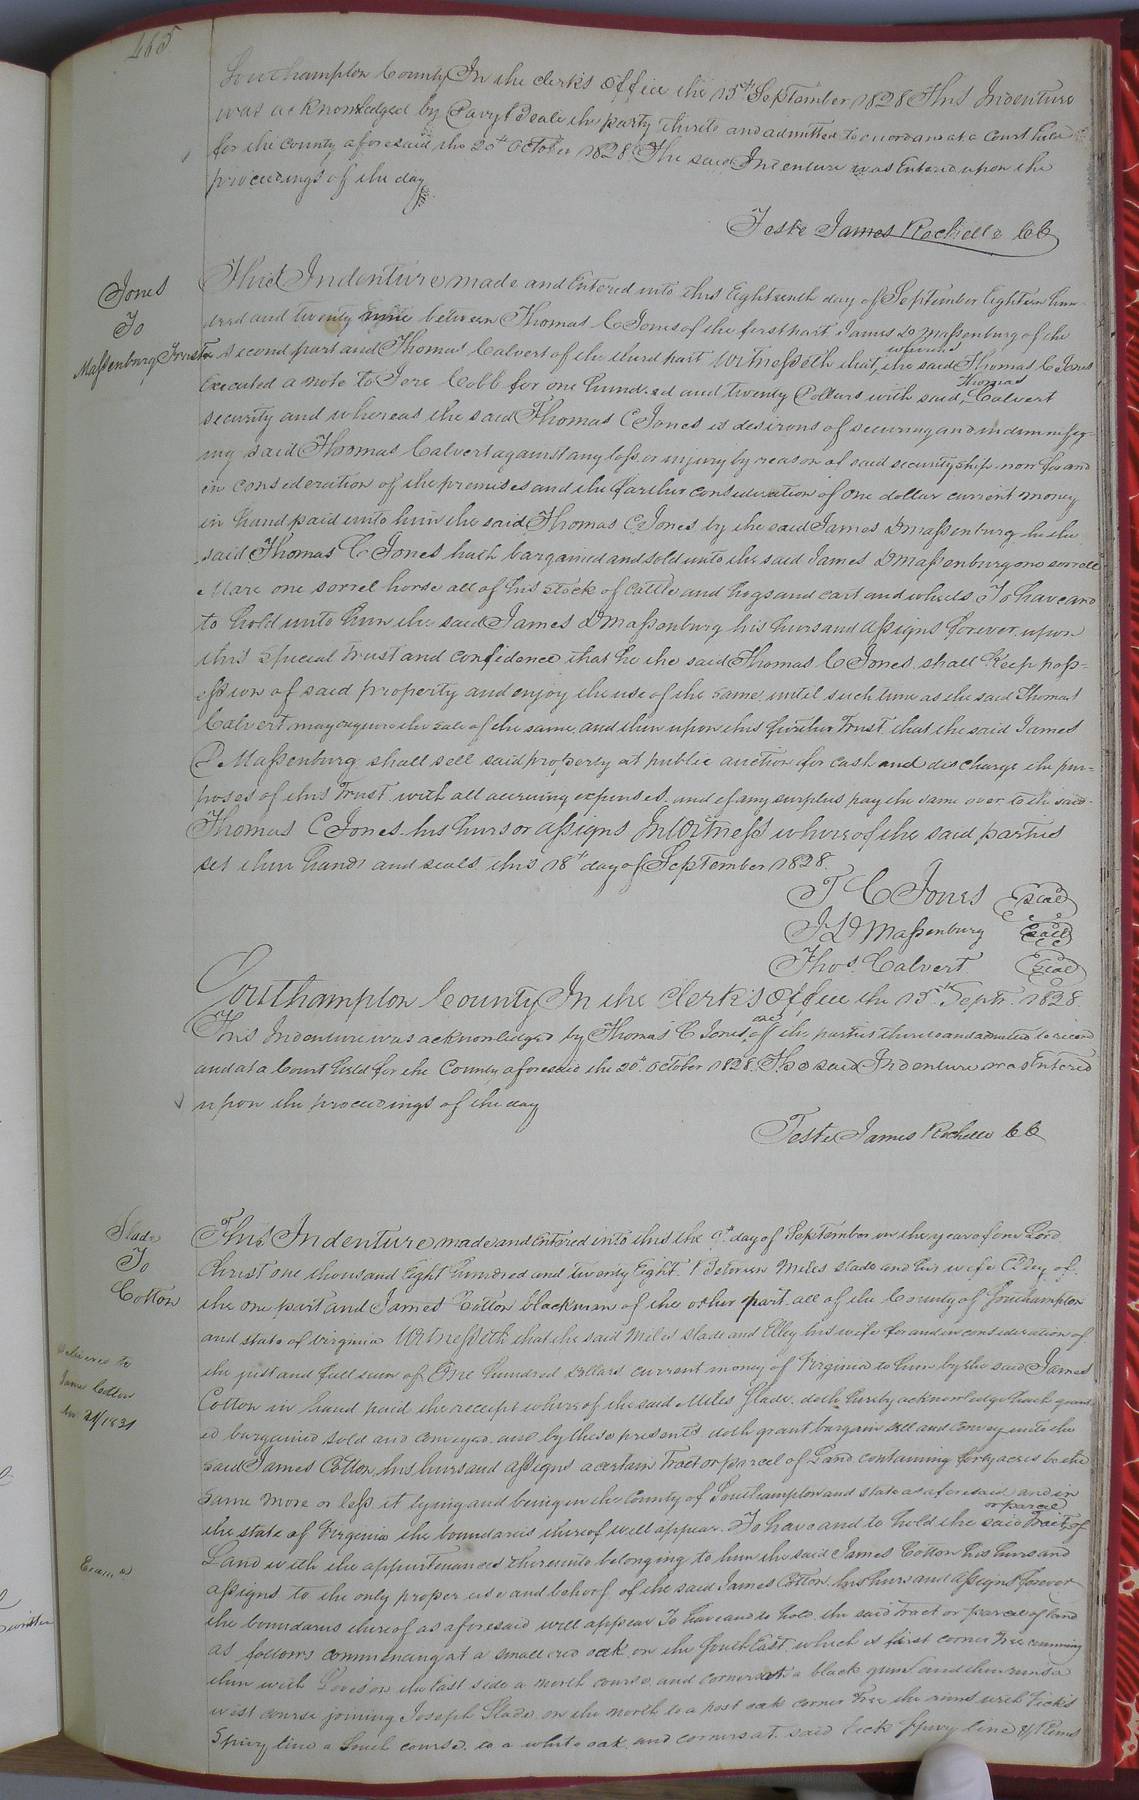 465
Southampton County In the clerk's office the 15th September 1828 This Indenture
was acknowledged by Deale the party thereto and admitted to record and at a Court held
for the County aforesaid the 20th October 1828 The said Indenture was Entered upon the
proceedings of the day
Teste James Rochelle CC
Jones
To
Maſsenburg Trustee
This Indenture made and Entered into this Eighteenth day of September Eighteen hun-
dred and twenty between Thomas C Jones of the first part James D Maſsenburg of the
second part and Thomas Calvert of the third part Witneſseth that, whereas the said Thomas C Jones
Executed a note to Jere Cobb for one hundred and twenty Dollars with said, Thomas Calvert
security and whereas the said Thomas C Jones is desirous of securing and indemnifey-
ing said Thomas Calvert against any loſs or injury by reason of said security ship. now for and
in consideration of the premises and the farther consideration of one dollar current money
in hand paid unto him the said Thomas C Jones by the said James D Maſsenburg he the
said Thomas C Jones hath bargained and sold unto the said James D Maſsenburg one sorrell
Mare one sorrel horse all of his stock of Cattle and hogs and cart and wheels To have and
to hold unto him the said James D Maſsenburg his heirs and aſsigns forever upon
this special Trust and confidence that he the said Thomas C Jones shall Keep poſs-
eſsion of said property and enjoy the use of the same until such time as the said Thomas
Calvert may require the sale of the same, and then upon this further Trust that the said James
D Maſsenburg shall sell said property at public auction for cash and discharge the pur-
poses of this Trust with all accruing expenses and if any surplus pay the same over to the said
Thomas C Jones his heirs or aſsigns In Witneſs whereof the said parties
set their hands and seals this 18th day of September 1828.
T C Jones Seal
J D Maſsenburg Seal
Thos. Calvert Seal
Southampton County In the Clerk's Office the 15th Septr. 1828
This Indenture was acknowledged by Thomas C Jones, one of the parties thereto and admitted to record
and at a Court held for the County aforesaid the 20th October 1828. The said Indenture was Entered
upon the proceedings of the day
Teste James Rochelle CC
Slade
To
Cotton
Delivered to
James Cotton
1831
Exam'd
This Indenture made and Entered into this the day of September in the year of our Lord
Christ one thousand Eight hundred and twenty Eight Between Miles Slade and his wife of
the one part and James Cotton blackman of the other part all of the County of Southampton
and state of Virginia Witneſseth that the said Miles Slade and Elley his wife for and in consideration of
the just and full sum of One hundred Dollars current money of Virginia to him by the said James
Cotton in hand paid the receipt where of the said Miles Slade doth hereby acknowledge hath grant-
ed bargained sold and conveyed and by these presents doth grant bargain sell and convey unto the
said James Cotton his heirs and aſsigns a certain Tract or parcel of Land containing forty acres be the
same more or leſs it lying and being in the County of Southampton and state as aforesaid and in
the state of Virginia the boundaries thereof will appear. To have and to hold the said Tract, or parcel of
Land with the appurtenances thereunto belonging to him the said James Cotton his heirs and
aſsigns to the only proper use and behoof of the said James Cotton his heirs and aſsigns forever
the boundaries thereof as aforesaid will appear To have and to hold the said Tract or parcel of Land
as follows commencing at a small red oak on the South East which is first corner Tree running
then with on the East side a north course, and corners at a black gum and then runs a
west course joining Joseph Slade on the north to a post oak corner Tree the runs with
Spivy line a South course to a white oak and corners at said Spivy line & Runs